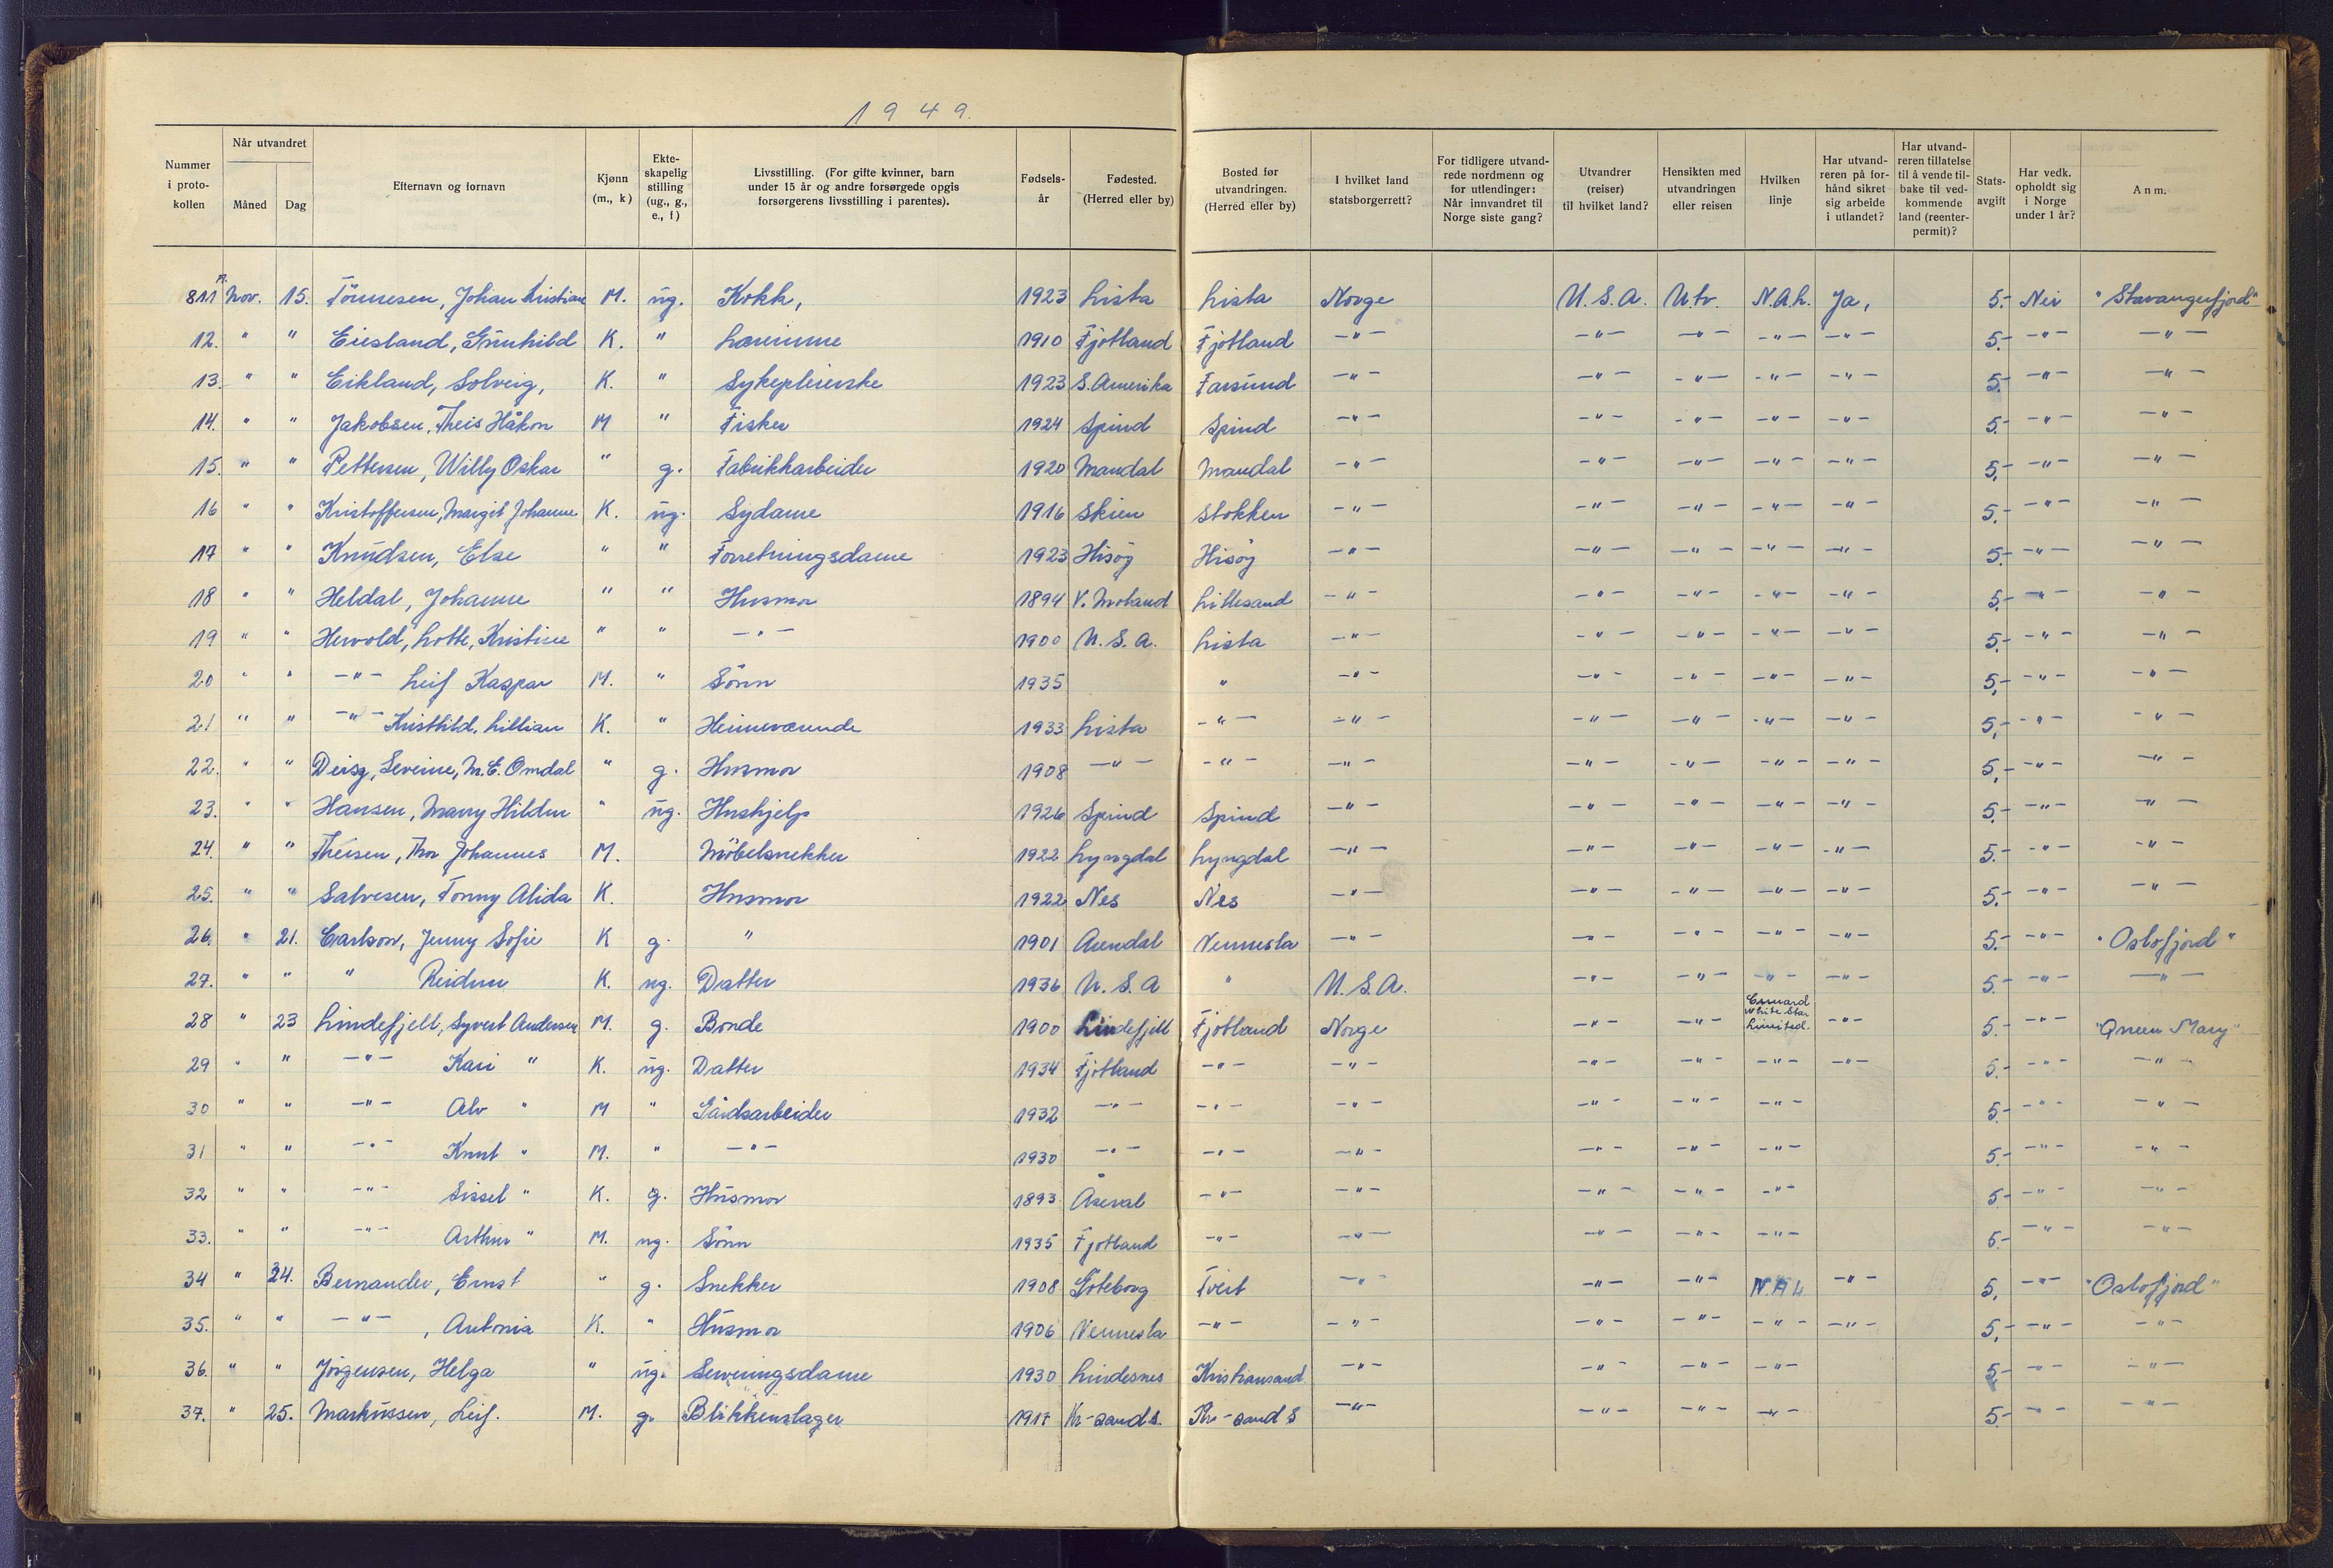 1949.
Nummer i proto- kollen | Når utvandret Måned | Dag | Efternavn og fornavn | Kjønn (m., k) | Ekte- skapelig stilling (ug., g., e., f) | Livsstilling. (For gifte kvinner, barn under 15 år og andre forsørgede opgis forsørgerens livsstilling i parentes). | Fødsels- år | Fødested. (Herred eller by) | Bosted før utvandringen. (Herred eller by) | I hvilket land statsborgerrett? | For tidligere utvand- rede nordmenn og for utlendinger: Når innvandret til Norge siste gang? | Utvandrer (reiser) til hvilket land? | Hensikten med utvandringen eller reisen | Hvilken linje | Har utvand- reren på for- hånd sikret sig arbeide i utlandet? | Har utvand- reren tillatelse til å vende til- bake til ved- kommende land (reenter- permit)? | Stats- avgift | Har vedk. opholdt sig i Norge under 1 år? | Anm.
811 Nov. 15. Tönnesen, Johan Kristian M. ug. Kokk, 1923 Lista Lista Norge U.S.A. Utv. N.A.L. Ja, 5.- Nei "Stavangerfjord"
12. " " Eiesland, Gunhild K. " Lærerinne 1910 Fjotland Fjotland -"- -"- -"- -"- -"- 5.- -"- -"-
13. " " Eikland, Solveig, K. " Sykepleierske 1923 S. Amerika Farsund -"- -"- -"- -"- -"- 5.- -"- -"-
14. " " Jakobsen, Theis Håkon M " Fisker 1924 Spind Spind -"- -"- -"- -"- -"- 5.- -"- -"-
15. " " Pettersen, Willy Oskar " g. Fabrikkarbeider 1920 Mandal Mandal -"- -"- -"- -"- -"- 5.- -"- -"-
16 " " Kristoffersen, Margit Johanne K. ug. Sydame 1916 Skien Stokken -"- -"- -"- -"- -"- 5.- -"- -"-
17 " " Knudsen, Else " " Forretningsdame 1923 Hisöy Hisöy -"- -"- -"- -"- -"- 5.- -"- -"-
18 " " Heldal, Johanne " " Husmor 1894 V. Moland Lillesand -"- -"- -"- -"- -"- 5.- -"- -"-
19 " " Hervold, Lotte, Kristine " " -"- 1900 U.S.A. Lista -"- -"- -"- -"- -"- 5.- -"- -"-
20 " " -"- Leif Kaspar M. " Sönn 1935 " -"- -"- -"- -"- -"- 5.- -"- -"-
21 " " -"- Kristhild, Lillian K. " Heimeværende 1933 Lista -"- -"- -"- -"- -"- -"- 5.- -"- -"-
22. " " Deisz, Severine, M.E. Omdal " g. Husmor 1908 -"- -"- -"- -"- -"- -"- -"- 5.- -"- -"-
23. " " Hansen, Marry Hildur " ug. Hushjelp 1926 Spind Spind -"- -"- -"- -"- -"- 5.- -"- -"-
24. " " Theisen, Thor Johannes M. Möbelsnekker 1922 Lyngdal Lyngdal -"- -"- -"- -"- -"- 5.- -"- -"-
25. " " Salvesen, Tonny Alida K. Husmor 1922 Nes Nes -"- -"- -"- -"- -"- 5.- -"- -"-
26. " 21. Carlson, Jenny Sofie K g. " 1901 Arendal Vennesla -"- -"- -"- -"- -"- 5.- -"- "Oslofjord"
27. " " " Reidun K. ug. Datter 1936 U.S.A " U.S.A. -"- -"- -"- -"- 5.- -"- -"-
28 " 23 Lindefjell, Syvert Andersen M. g. Bonde 1900 Lindefjell Fjotland Norge -"- -"- Cunard White Star Limited. -"- 5.- -"- "Queen Mary"
29 " " -"- Kari " K. ug. Datter 1934 Fjotland -"- -"- -"- -"- -"- -"- 5.- -"- -"-
30 " " -"- Alv " M " Gårdsarbeider 1932 -"- -"- -"- -"- -"- -"- 5.- -"- -"-
31 " " -"- Knut " M. " -"- 1930 -"- -"- -"- -"- -"- -"- 5.- -"- -"-
32 " " -"- Sissel " K. g. Husmor 1893 Åseral -"- -"- -"- -"- -"- 5.- -"- -"-
33. " " -"- Arthur " M. ug. Sönn 1935 Fjotland -"- -"- -"- -"- -"- 5.- -"- -"-
34 " 24. Bernander, Ernst " g. Snekker 1908 Göteborg Tveit -"- -"- -"- N.A.L -"- 5, -"- "Oslofjord"
35. " " -"- , Antonia K. " Husmor 1906 Vennesla -"- -"- -"- -"- -"- -"- 5.- -"- -"-
36. " " Jörgensen, Helga " ug. Serveringsdame 1930 Lindesnes Kristiansand. -"- -"- -"- -"- 5.- -"- -"-
37. " 25. Markussen, Leif. M. g. Blikkenslager 1917 Kr-sand S. Kr-sand S -"- -"- -"- -"- 5.- -"- -"-